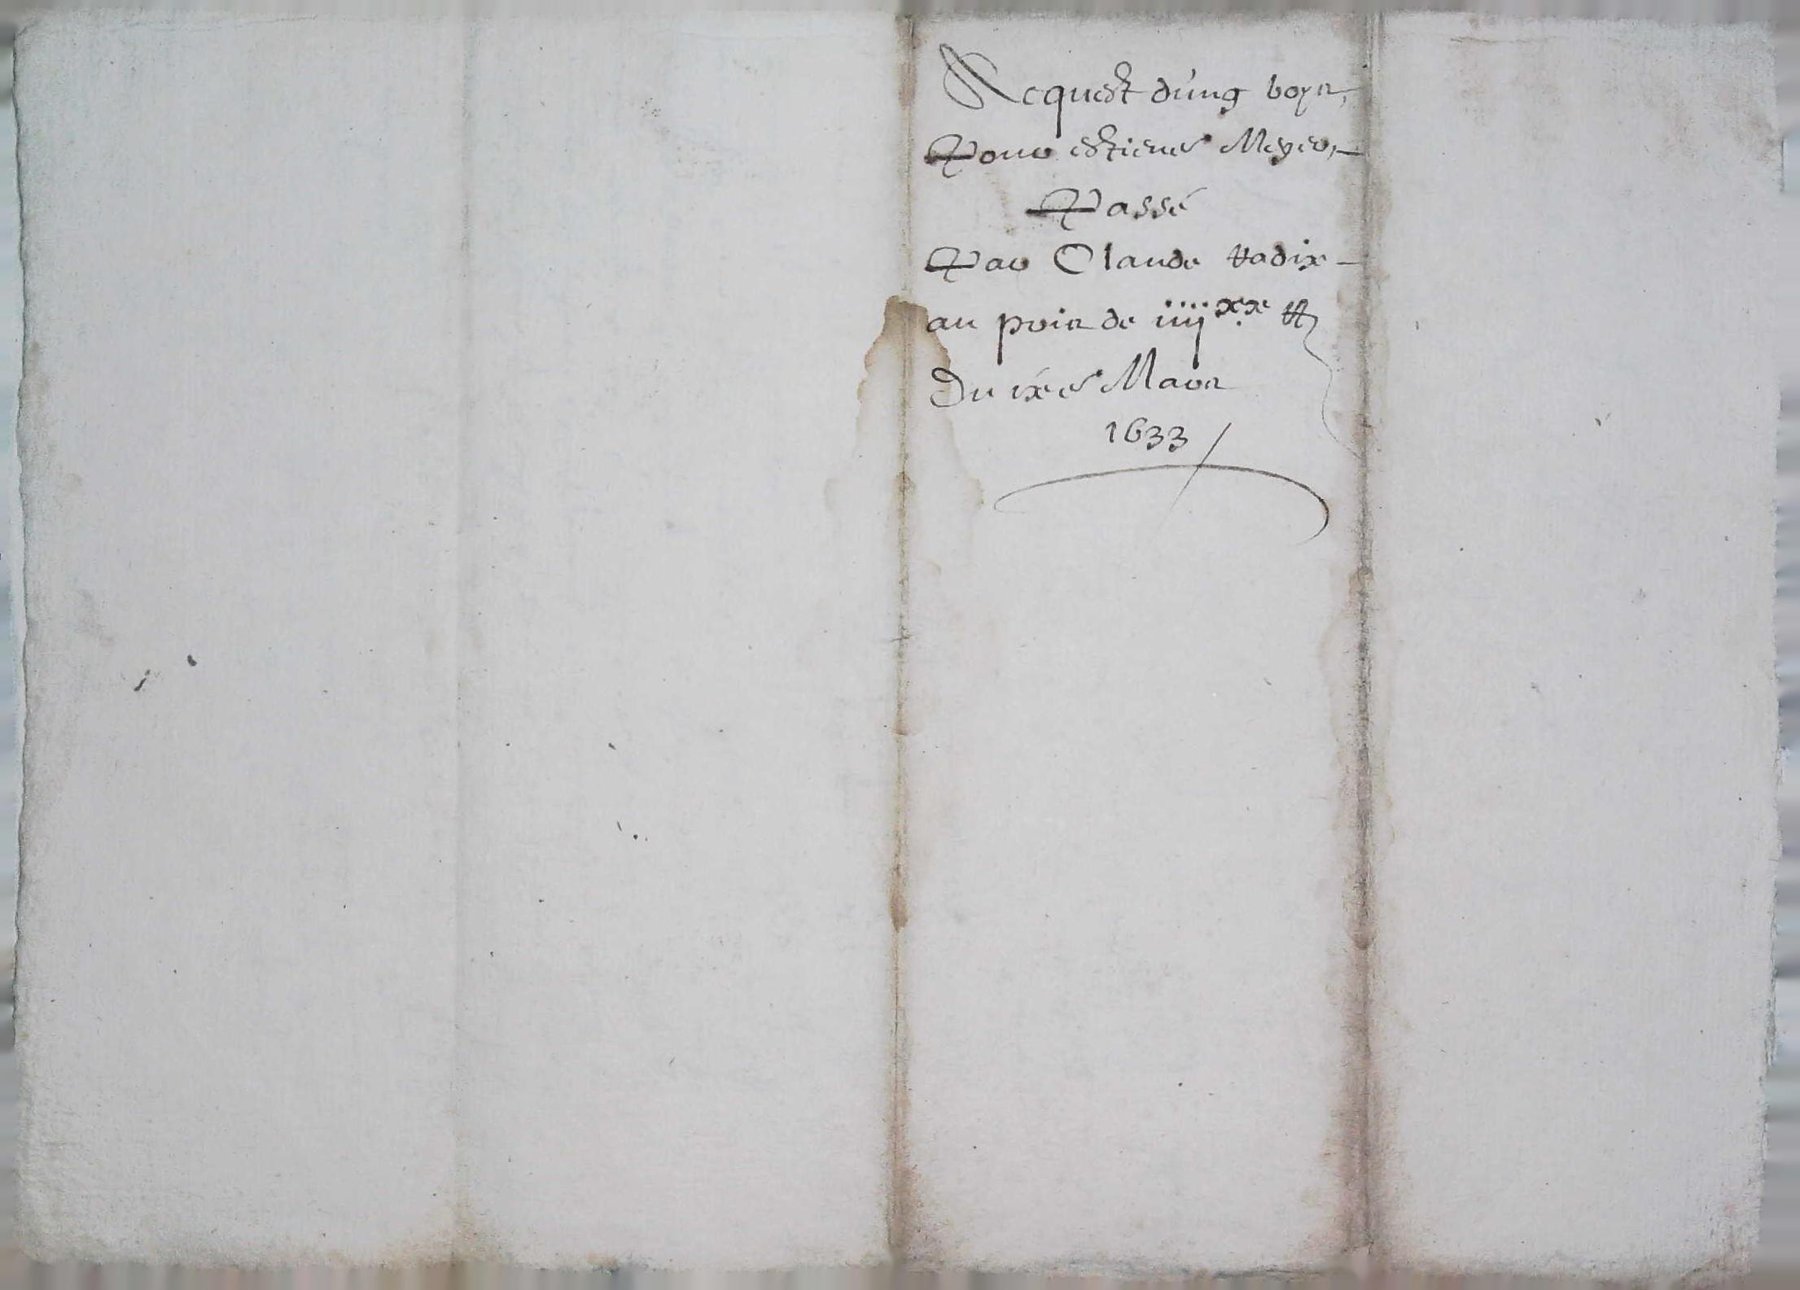 Request d'ung boys,
Pour estienne Meyer,
Passé
Par Claude
au pris de iiij^xx ₶
Du ixe Mars
1633